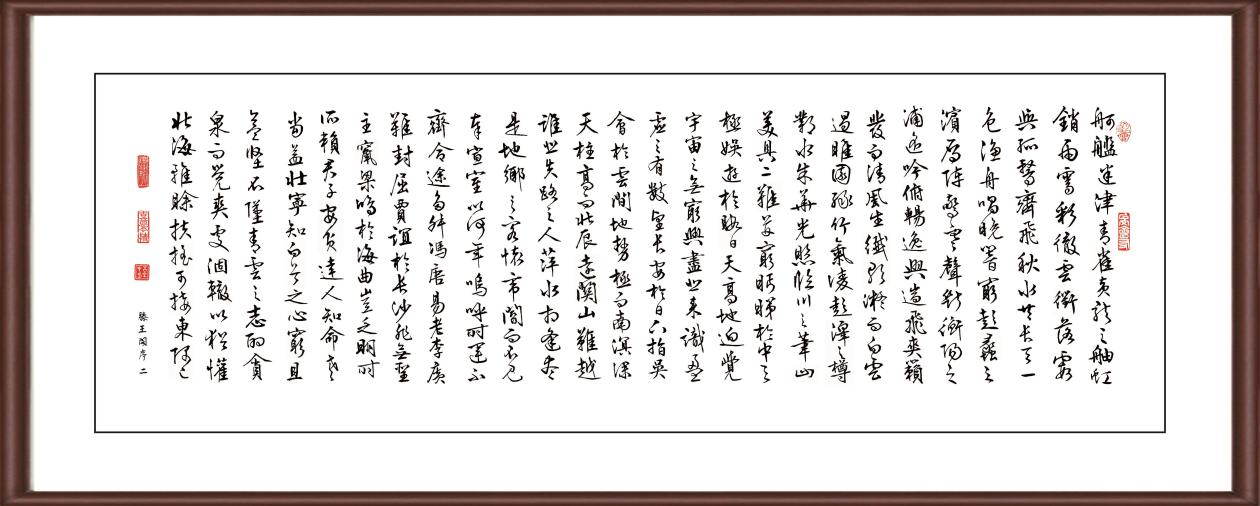 舸艦迷津青雀黃龍之舳虹
銷雨霽彩徹雲衢落霞
與孤鶩齊飛秋水共長天一
色漁舟唱晚響窮彭蠡之
濱雁陣驚寒聲斷衡陽之
浦遙吟俯暢逸興遄飛爽籟
發而清風生纖歌凝而白雲
遏睢園綠竹氣凌彭澤之樽
鄴水朱華光照臨川之筆四
美具二難并窮眄睇於中天
極娛遊於暇日天高地迥覺
宇宙之無窮興盡悲來識盈
虛之有數望長安於日下指吳
會於雲間地勢極而南溟深
天柱高而北辰遠關山難越
誰悲失路之人萍水相逢盡
是他鄉之客懷帝閽而不見
奉宣室以何年嗚呼時運不
齊命途多舛馮唐易老李廣
難封屈賈誼於長沙非無聖
主竄梁鴻於海曲豈乏明時
所賴君子安貧達人知命老
當益壯寧知白首之心窮且
益堅不墜青雲之志酌貪
泉而覺爽處涸轍以猶懽
北海雖賒扶搖可接東隅已
滕王閣序 二